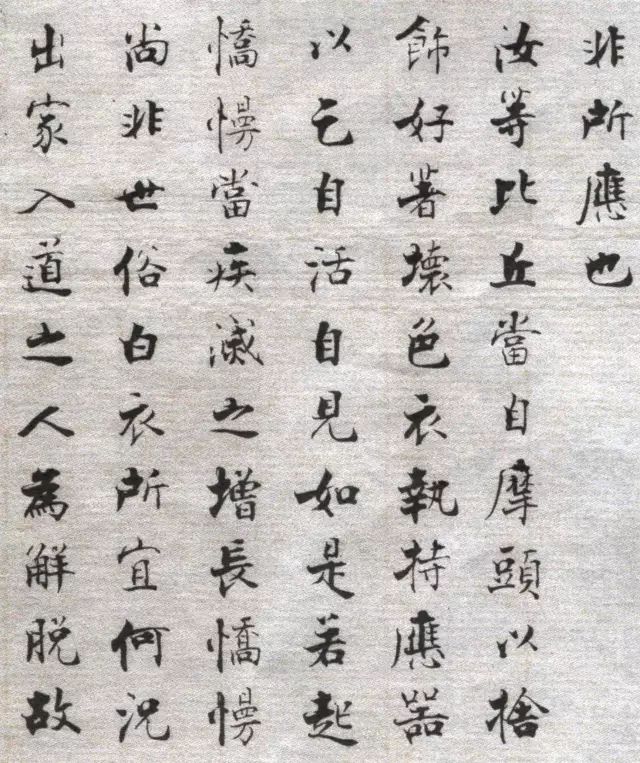 非所應也
汝等比丘當自摩頭以捨
飾好著壞色衣執持應器
以乞自活自見如是若起
憍慢當疾滅之增長憍慢
尚非世俗白衣所宜何況
出家入道之人為解脫故